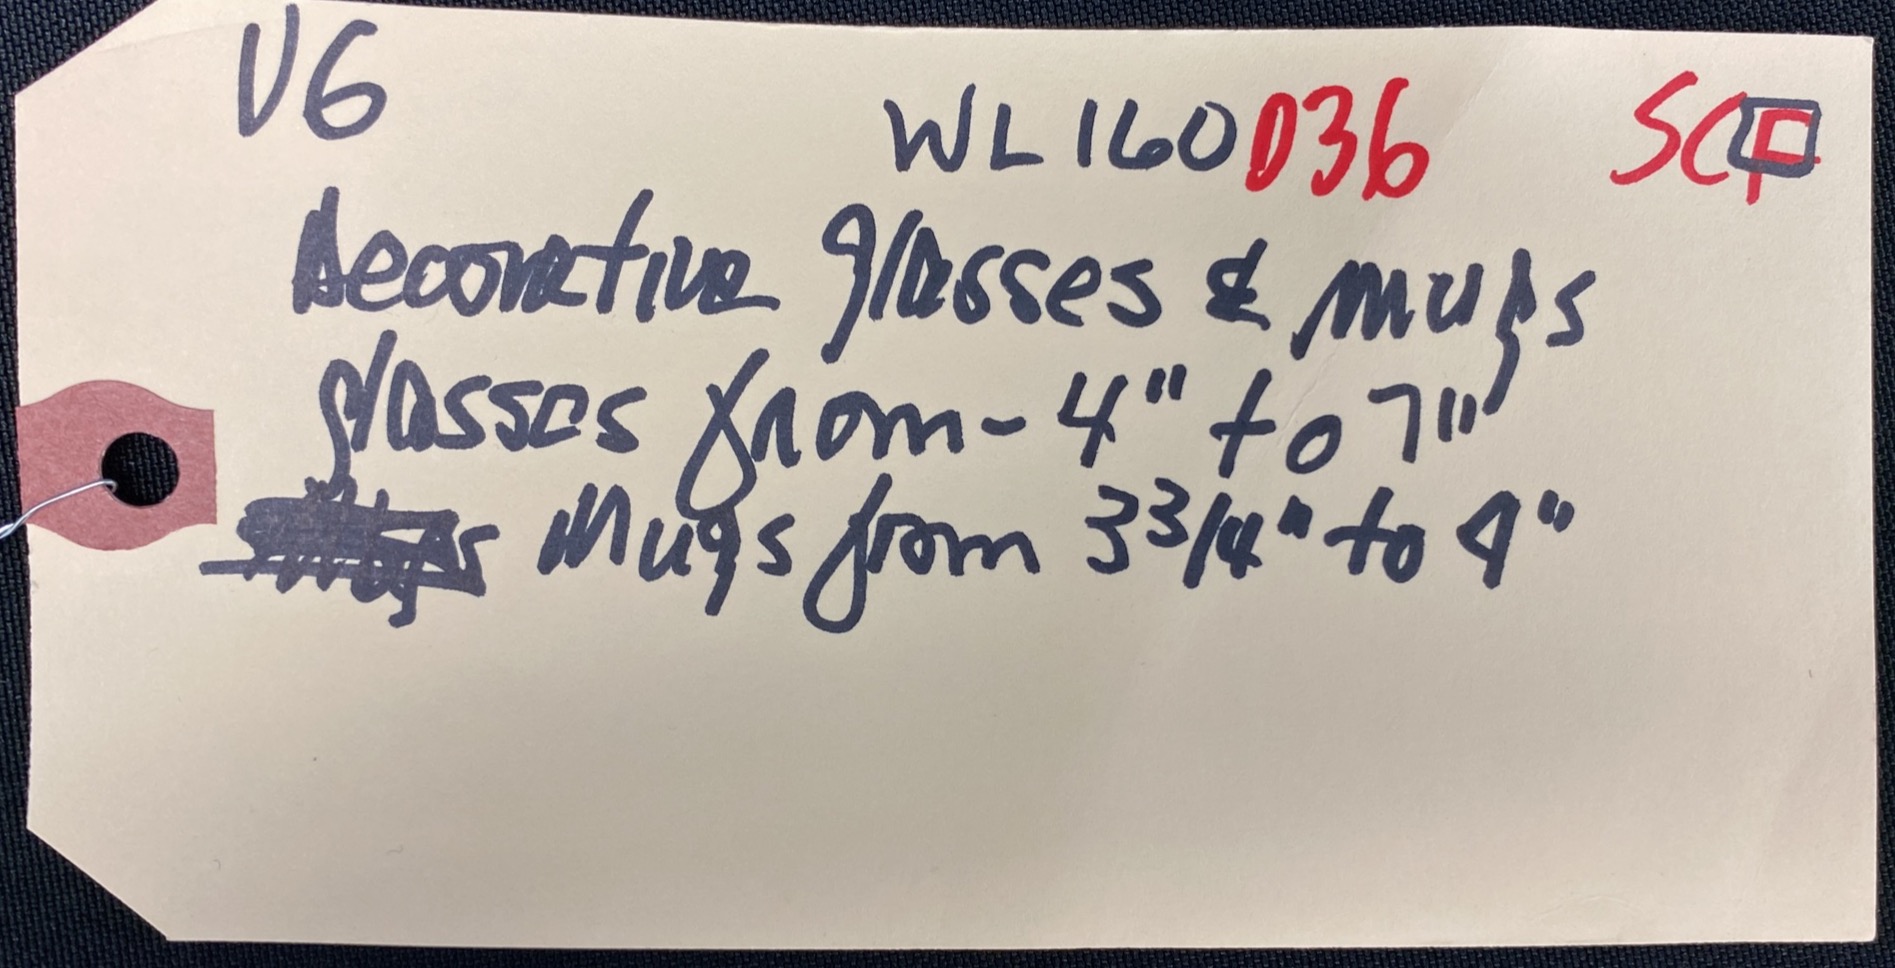 V6
WL160 D36 SCF
Decorative glasses & mugs
glasses from - 4" to 7"
Mugs from 3 3/4" to 4"